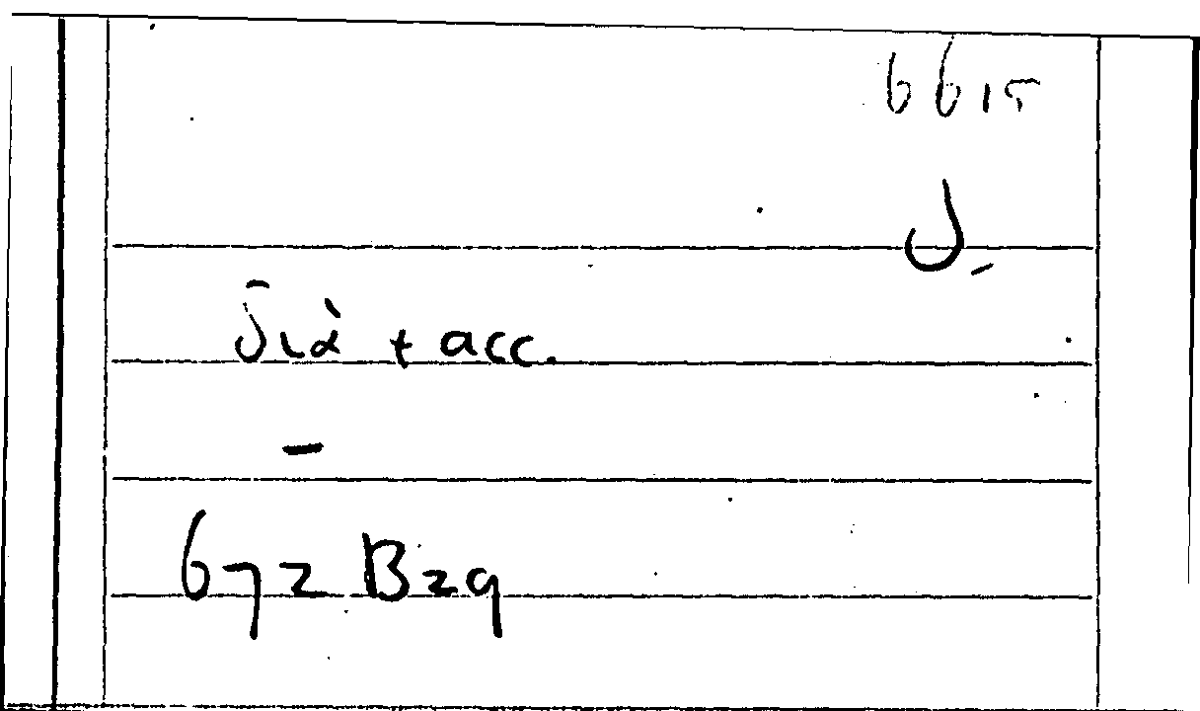 6615
J.
διὰ + acc.
–
672 B29